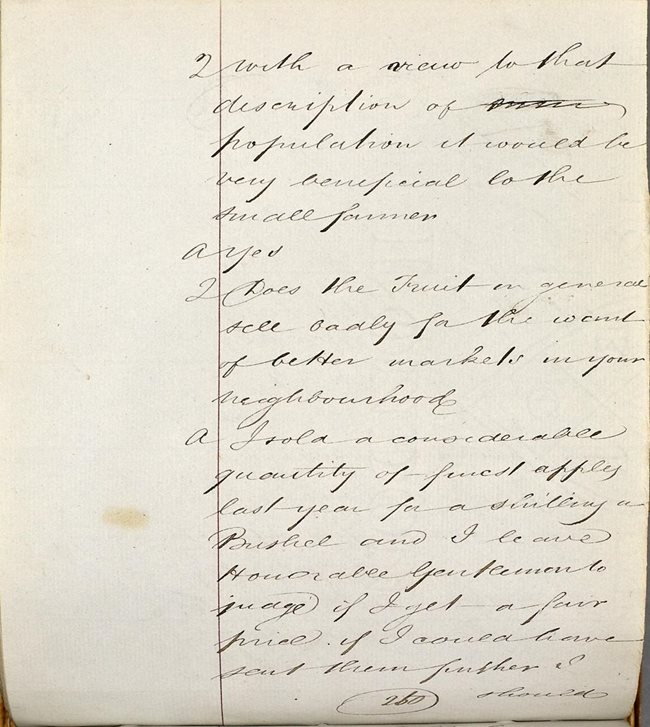 Q with a view to that
description of
population it would be
very beneficial to the
small farmer
A Yes
Q Does the Fruit in general
sell badly for the want
of better markets in your
neighbourhood
A I sold a considerable
quantity of finest apples
last year for a shilling a
Bushel and I leave
Honorable Gentlemen to
judge if I get a fair
price. if I could have
sent them further I
should
260